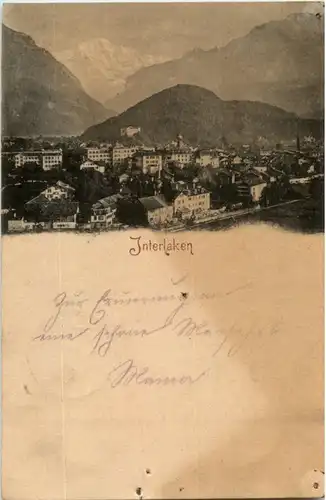 Interlaken
Zur Erinnerung an
eine schöne
Mama